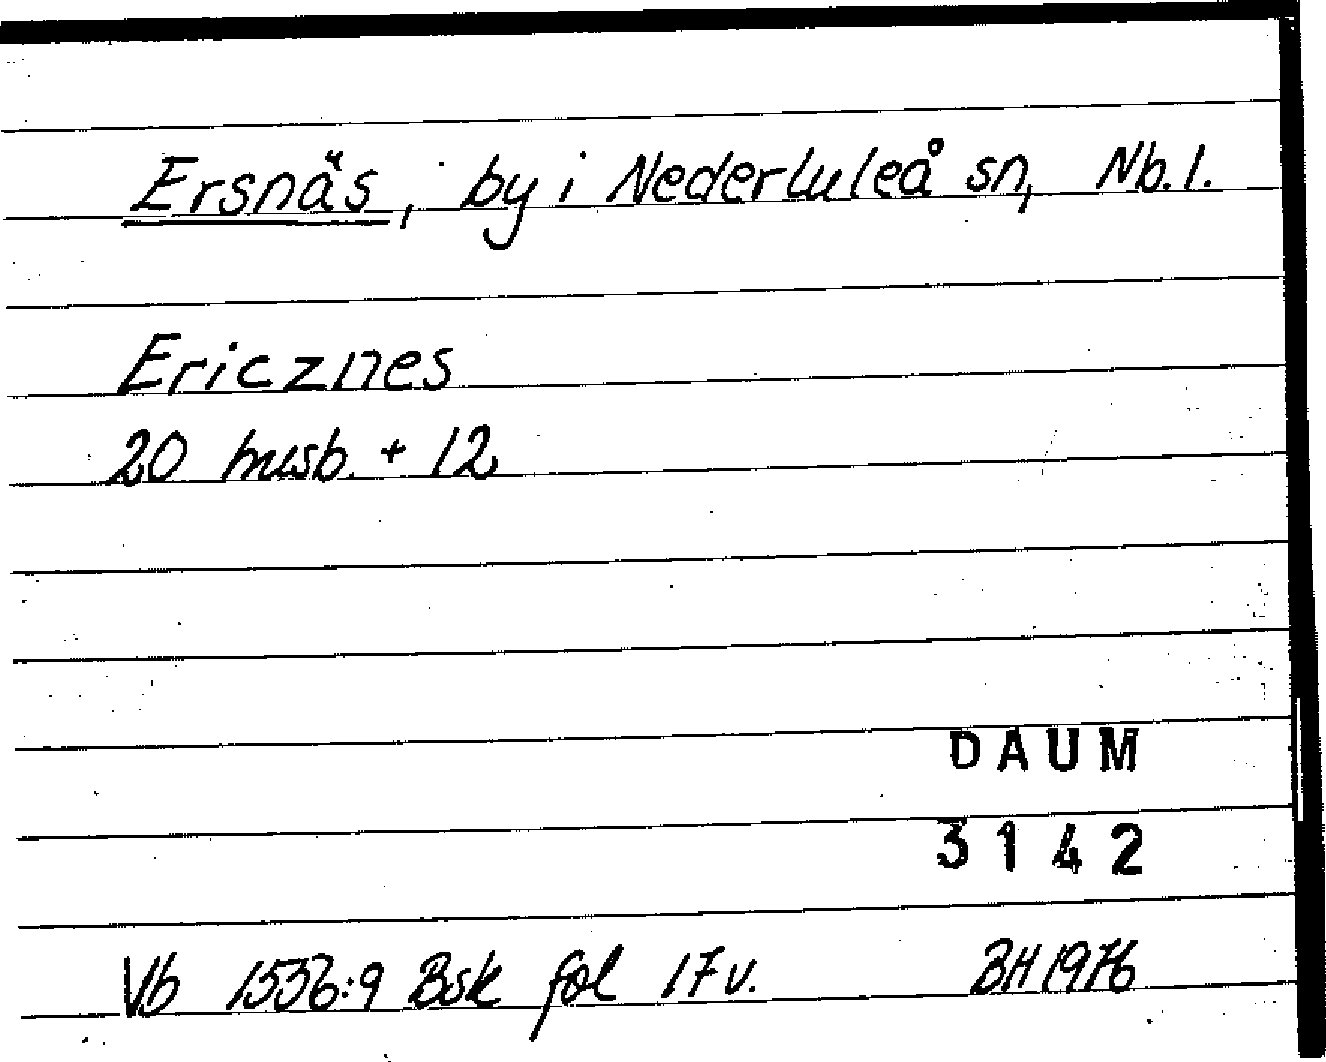 Ersnäs, by i Nederluleå sn, Nb. l.
Ericznes
20 husb. + 12
DAUM
3142
Vb 1536:9 Bsk fol 17 v. BH 1976